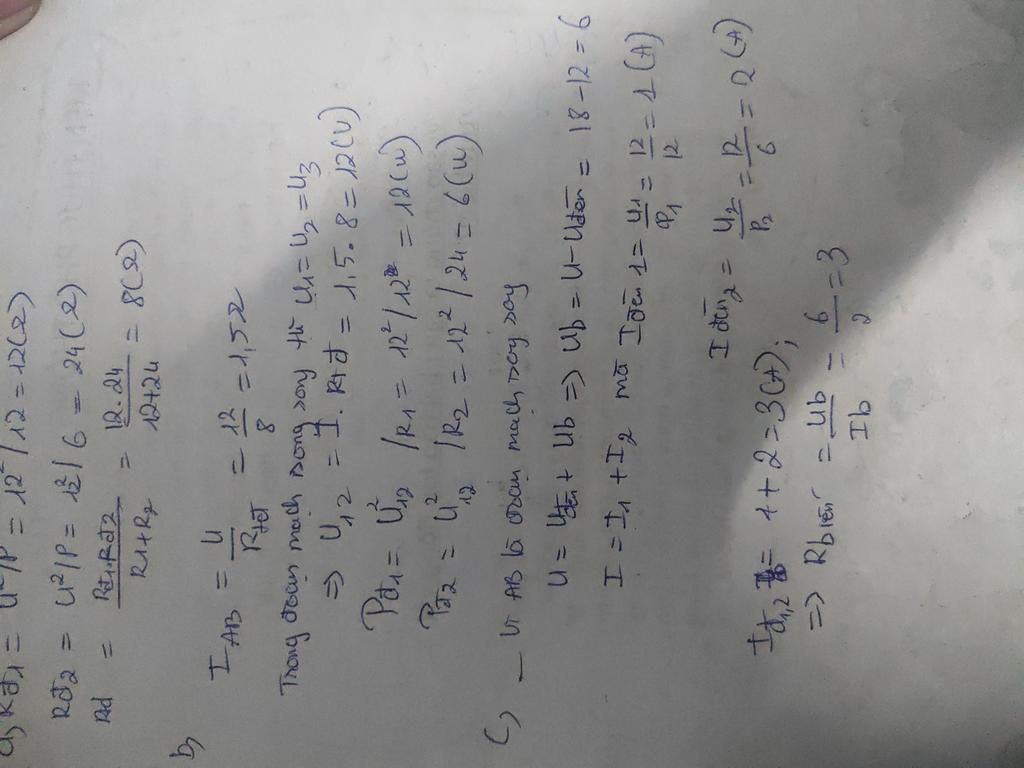 a, Rđ1 = U²/P = 12²/12 = 12(Ω)
Rđ2 = U²/P = 12²/6 = 24(Ω)
Rđ = Rđ1.Rđ2/R1+R2 = 12.24/12+24 = 8(Ω)
b,
I AB = U/Rtđ = 12/8 = 1,5Ω
Trong đoạn mạch song song thì U1 = U2 = U3
=> U12 = I. Rtđ = 1,5.8 = 12(V)
Pđ1 = U²12 /R1 = 12²/12 = 12(W)
Pđ2 = U²12 /R2 = 12²/24 = 6(W)
C, — Vì AB là đoạn mạch song song
U = Uđèn + Ub => Ub = U - Uđèn = 18 - 12 = 6
I = I1 + I2 mà I đèn 1 = U1/P1 = 12/12 = 1 (A)
I đèn 2 = U2/P2 = 12/6 = 2 (A)
I đ1,2 = 1 + 2 = 3(A);
=> R biến = Ub/Ib = 6/2 = 3